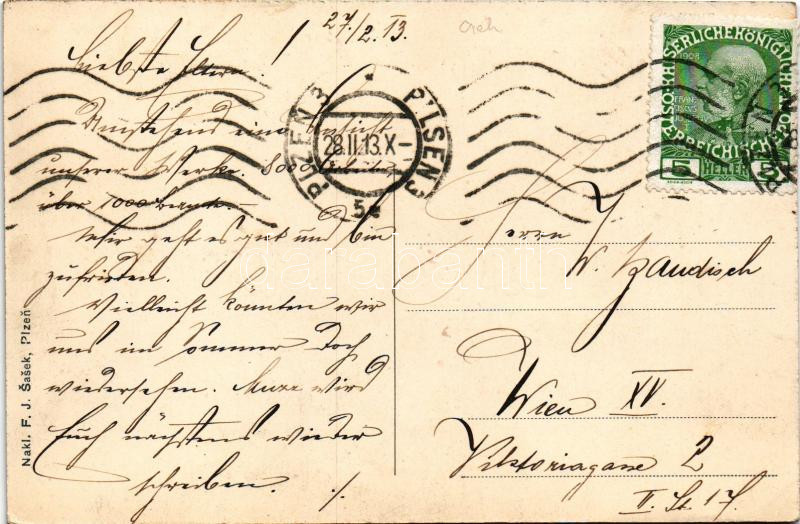 27/2.13.
Liebste Eltern!
Umstehend eine Ansicht
unserer Werke. 8000
über 1000 Beamte.
Mir geht es gut und bin
zufrieden.
Vielleicht könnten wir
uns im Sommer doch
wiedersehen. wird
Euch nächstens wieder
schreiben. ./.
PLZEŇ 3 * PILSEN 3
28.II.13.X-
5*
1908
KAISERLICHEKÖNIGLICHE
ÖSTERREICHISCHE POST
5 HELLER 5
H. H.
Herrn
W. Handisch
Wien XV.
Viktoriagasse 2
II. St. 17.
Nakl. F. J. Šašek, Plzeň
darabanth